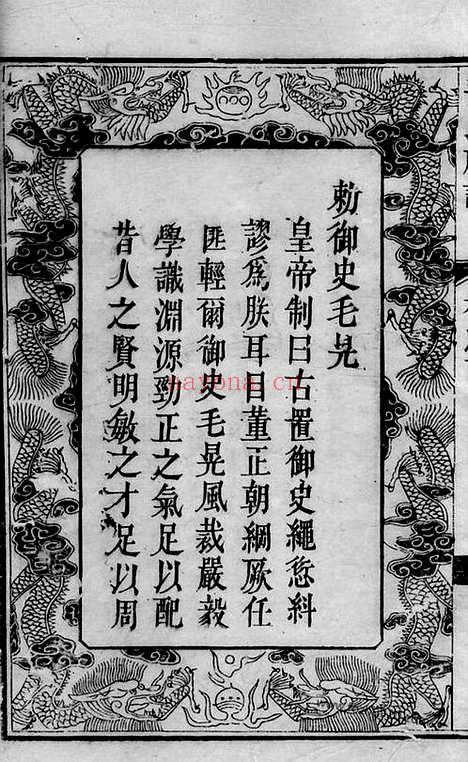 勑御史毛晃
皇帝制曰古置御史繩愆糾
謬爲朕耳目董正朝綱厥任
匪輕爾御史毛晃風裁嚴毅
學識淵源勁正之氣足以配
昔人之賢明敏之才足以周
nayona.cn